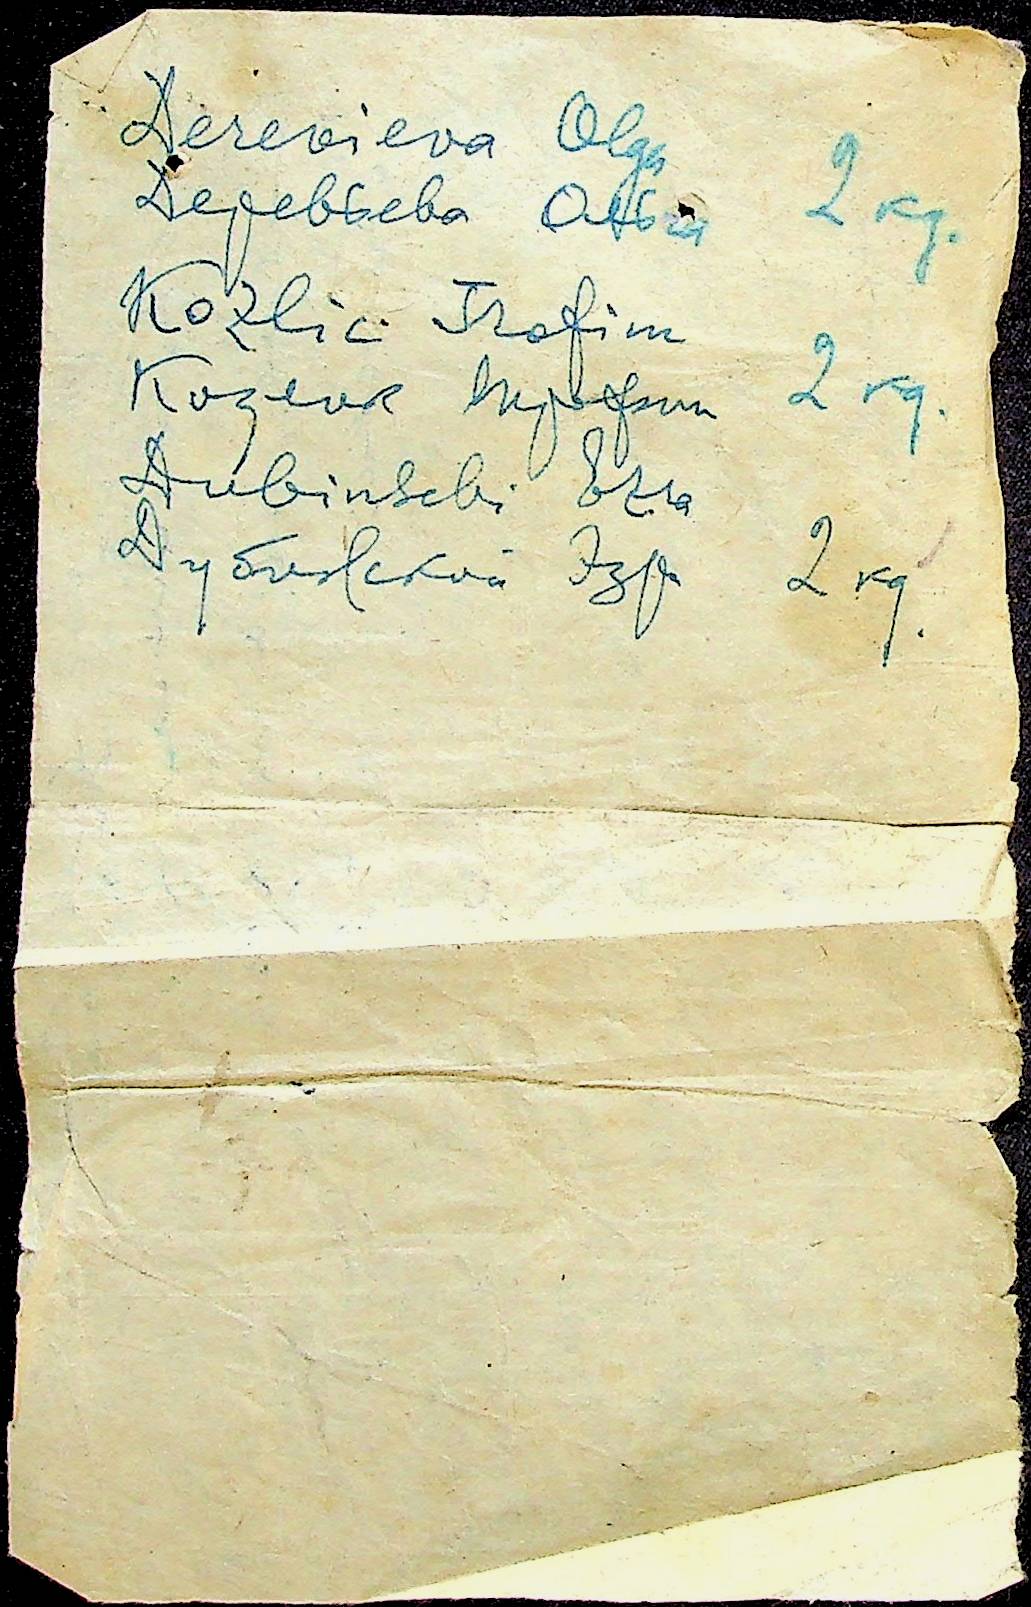 Derevieva Olga
Деревьева Ольга 2 кg.
Kozlic Trofim
Козлик Трофим 2 кg.
Dubinschi Ezra
Дубинский Эзра 2 кg.